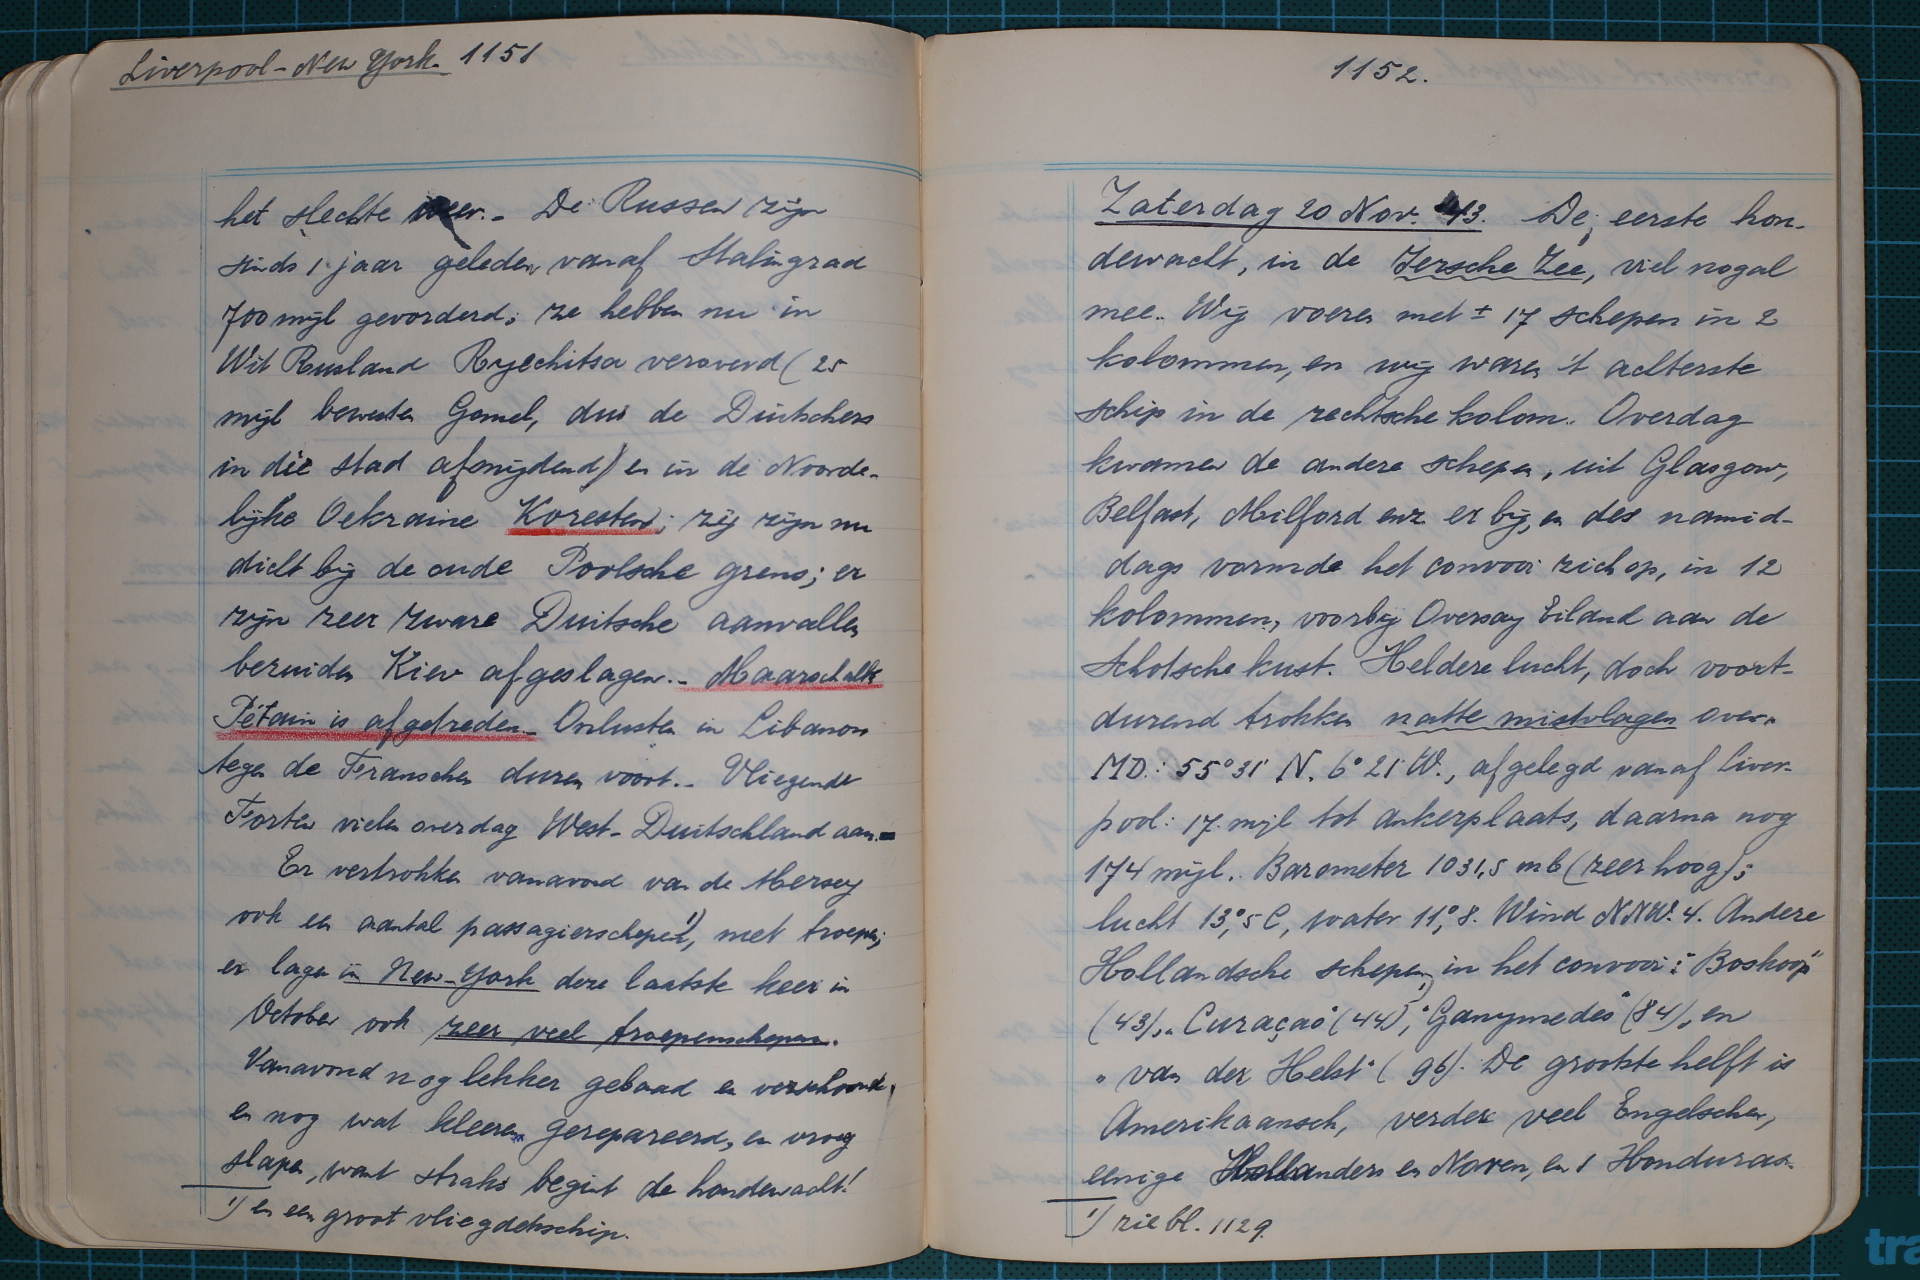 Liverpool-New York 1151
het slechte weer.- De Russen zijn
sinds 1 jaar geleden vanaf Stalingrad
700 mijl gevorderd; ze hebben nu in
Wit Rusland Ryechitsa veroverd (25
mijl bewesten Gomel, dus de Duitschers
in die stad afsnijdend) en in de Noorde-
lijke Oekraine Koresten; zij zijn nu
dicht bij de oude Poolsche grens; er
zijn zeer zware Duitsche aanvallen
bezuiden Kiev afgeslagen.- Maarschalk
Pétain is afgetreden.- Onlusten in Libanon
tegen de Franschen duren voort.- Vliegende
Forten vielen overdag West-Duitschland aan.-
Er vertrokken vanavond van de Mersey
ook een aantal passagierschepen 1), met troepen;
er lagen in New-York deze laatste keer in
October ook zeer veel troepenschepen.
Vanavond nog lekker gebaad en verschoond,
en nog wat kleeren gerepareerd, en vroeg
slapen, want straks begint de hondewacht!
1) en een groot vliegdekschip.
1152.
Zaterdag 20 Nov. 43. De eerste hon-
dewacht, in de Iersche Zee, viel nogal
mee. Wij voeren met ± 17 schepen in 2
kolommen, en wij waren 't achterste
schip in de rechtsche kolom. Overdag
kwamen de andere schepen, uit Glasgow,
Belfast, Milford enz. er bij, en des namid-
dags vormde het convooi zich op, in 12
kolommen, voorbij Oversay Eiland aan de
Schotsche kust. Heldere lucht, doch voort-
durend trokken natte mistvlagen over.
MD.: 55°31' N. 6°21' W., afgelegd vanaf Liver-
pool: 17 mijl tot ankerplaats, daarna nog
174 mijl. Barometer 1031,5 mb (zeer hoog);
lucht 13°,5 C, water 11°,8. Wind NNW. 4. Andere
Hollandsche schepen 1) in het convooi: "Boskoop"
(43), "Curaçao" (44), "Ganymedes" (84), en
"van der Helst" (96). De grootste helft is
Amerikaansch, verder veel Engelschen,
eenige Hollanders en Noren, en 1 Honduras.
1) zie bl. 1129.